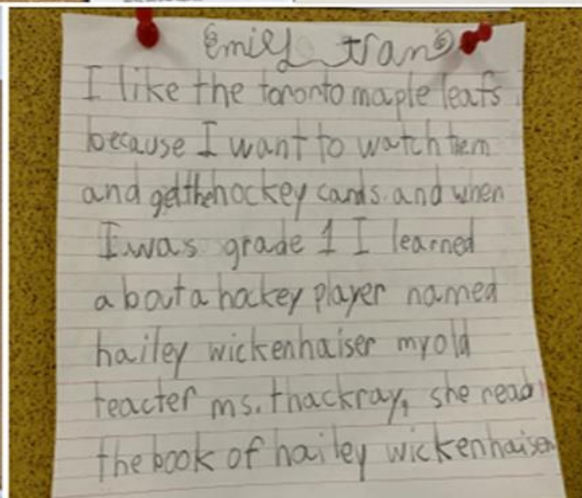 Emily tran
I like the toronto maple leafs
because I want to watch them
and getthehockey cards. and when
I was grade 1 I learned
about a hockey player named
hailey wickenhaiser my old
teacter ms. thackray, she read
the book of hailey wickenhaiser